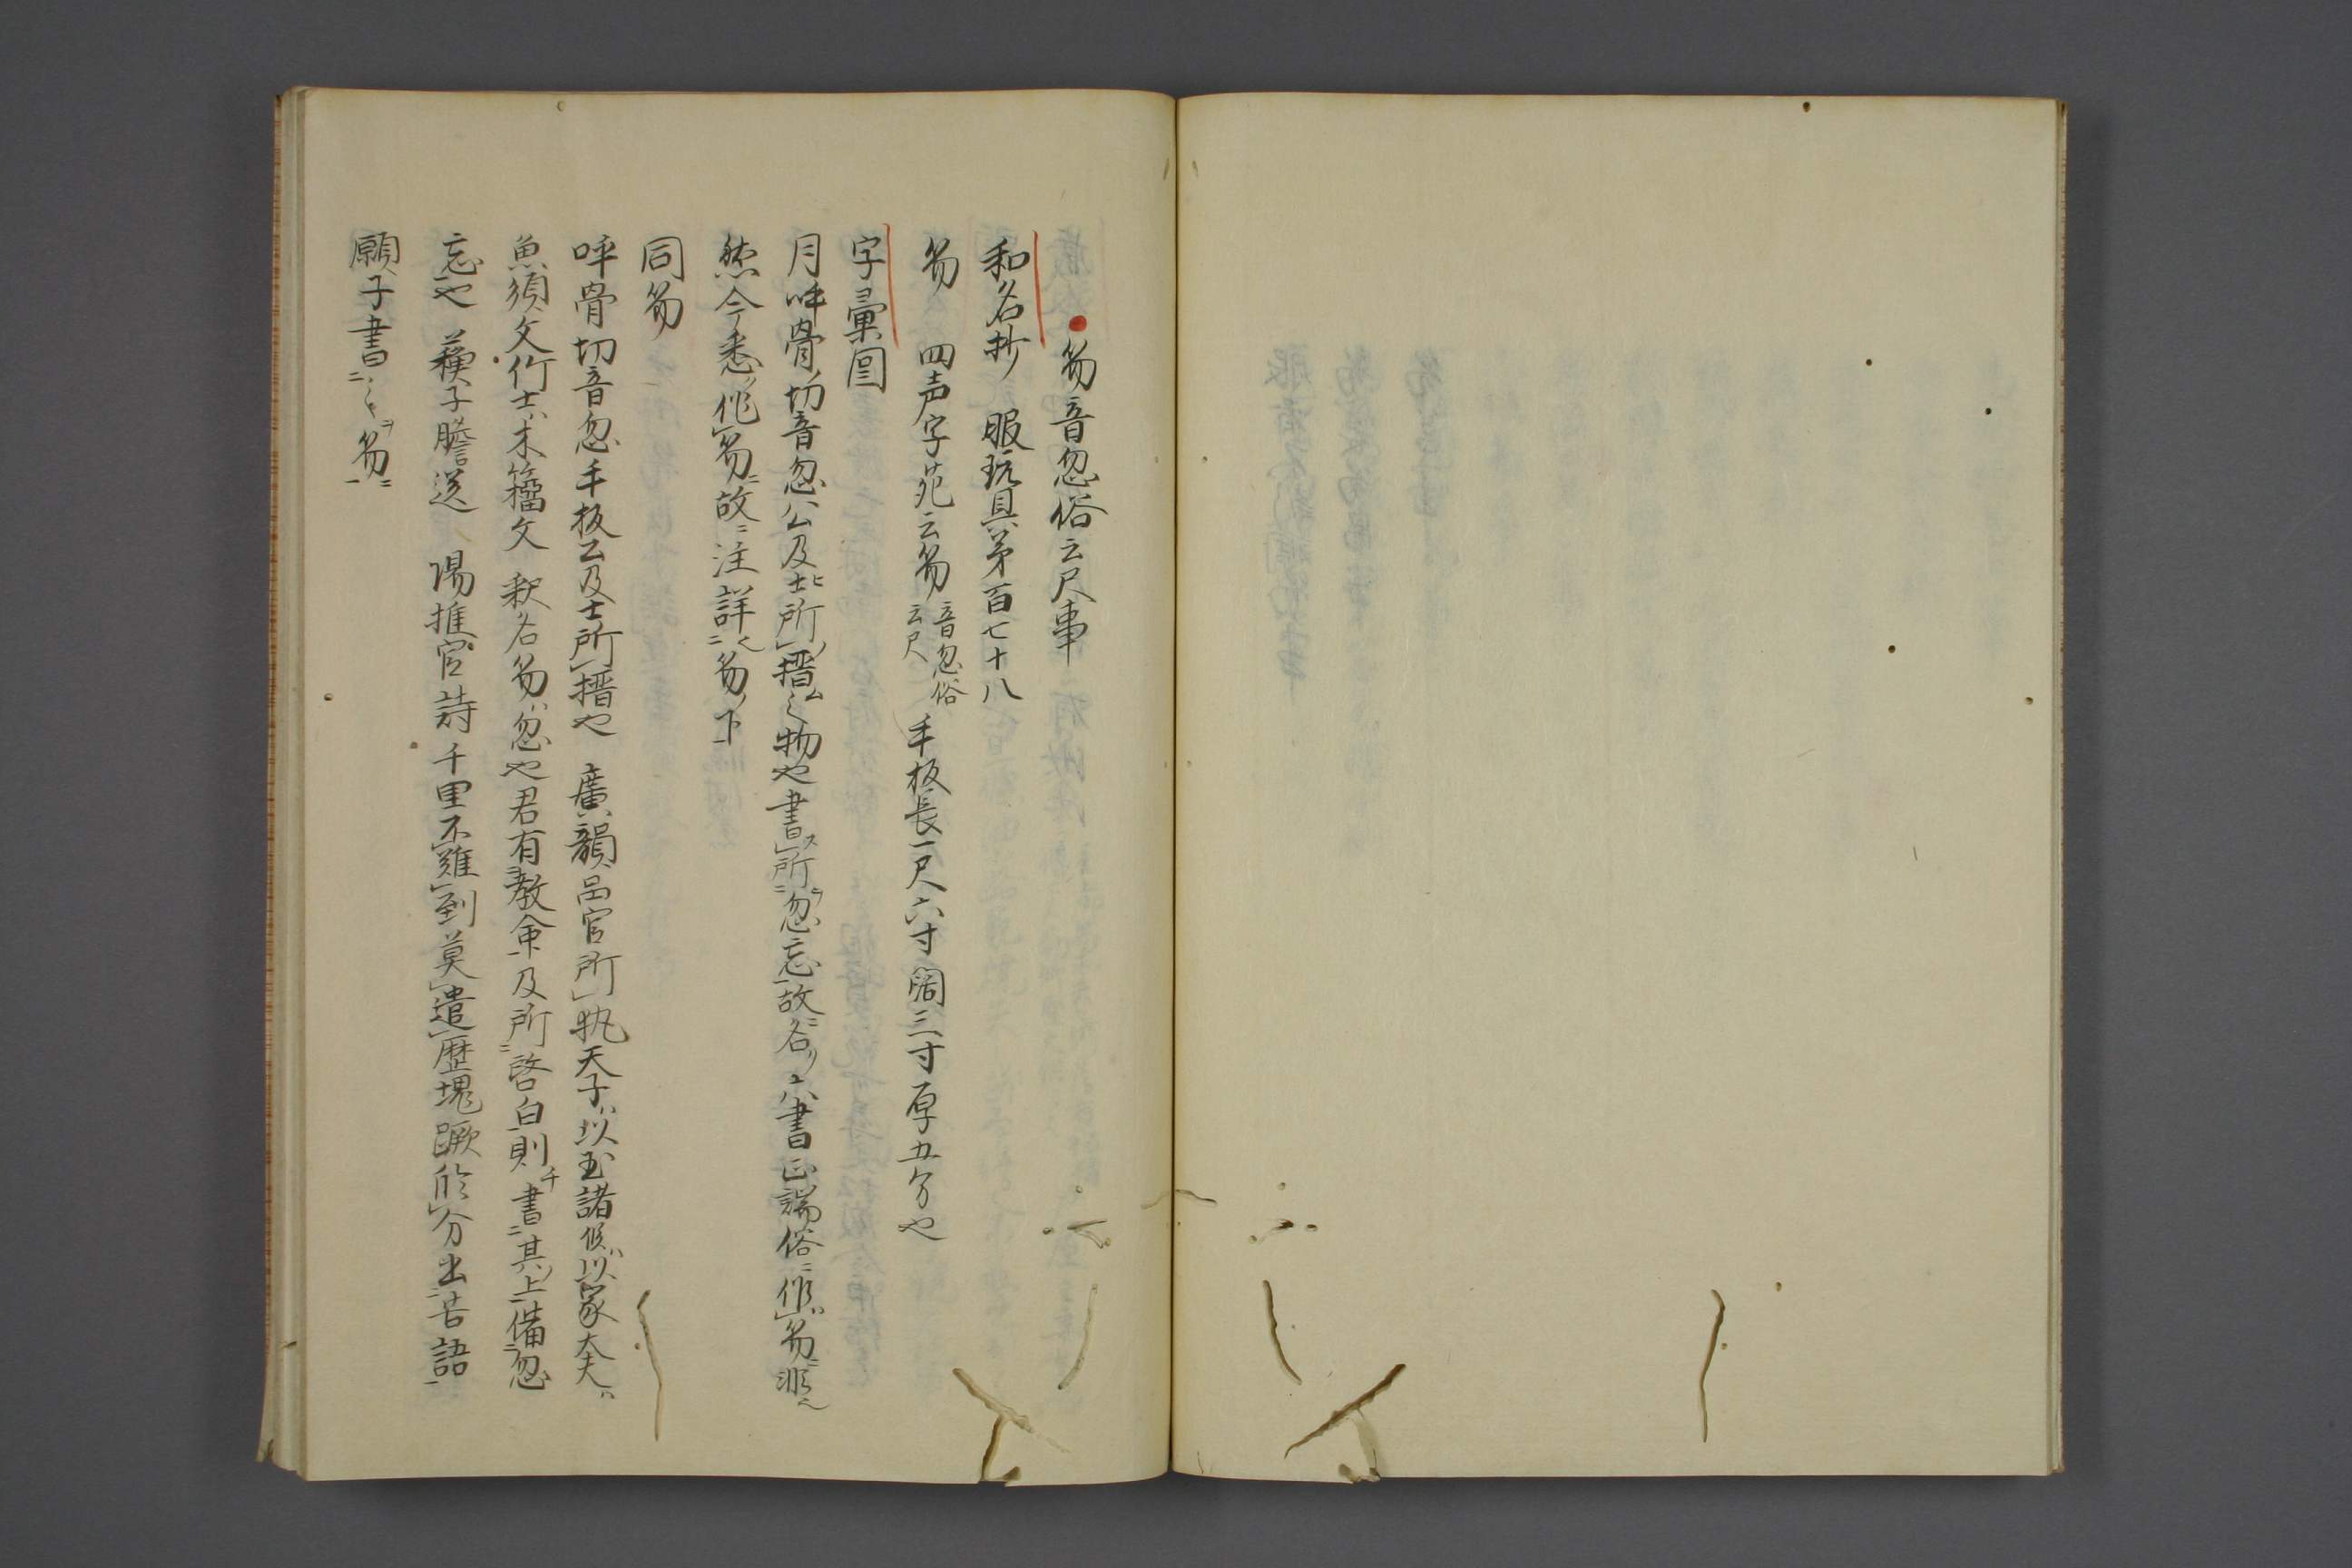 笏音忽俗云尺事
和名抄 服玩具第百七十八
笏 四声字苑云笏音忽俗云尺手板長一尺六寸闊三寸厚五分也
字彙囙
月呼骨切音忽公及士所搢之物也書所忽忘故名 六書正譌俗作笏非
然今悉作笏故注詳笏下
同笏
呼骨切音忽手板公及士所搢也 廣韻品官所執天子以玉諸侯以象大夫
魚須文竹士木籒文 釈名笏忽也君有教命及所啓白則書其上備忽
忘也 蘓子瞻送 陽推官詩 千里不難到莫遣歴塊蹶 分出苦語
願子書之笏